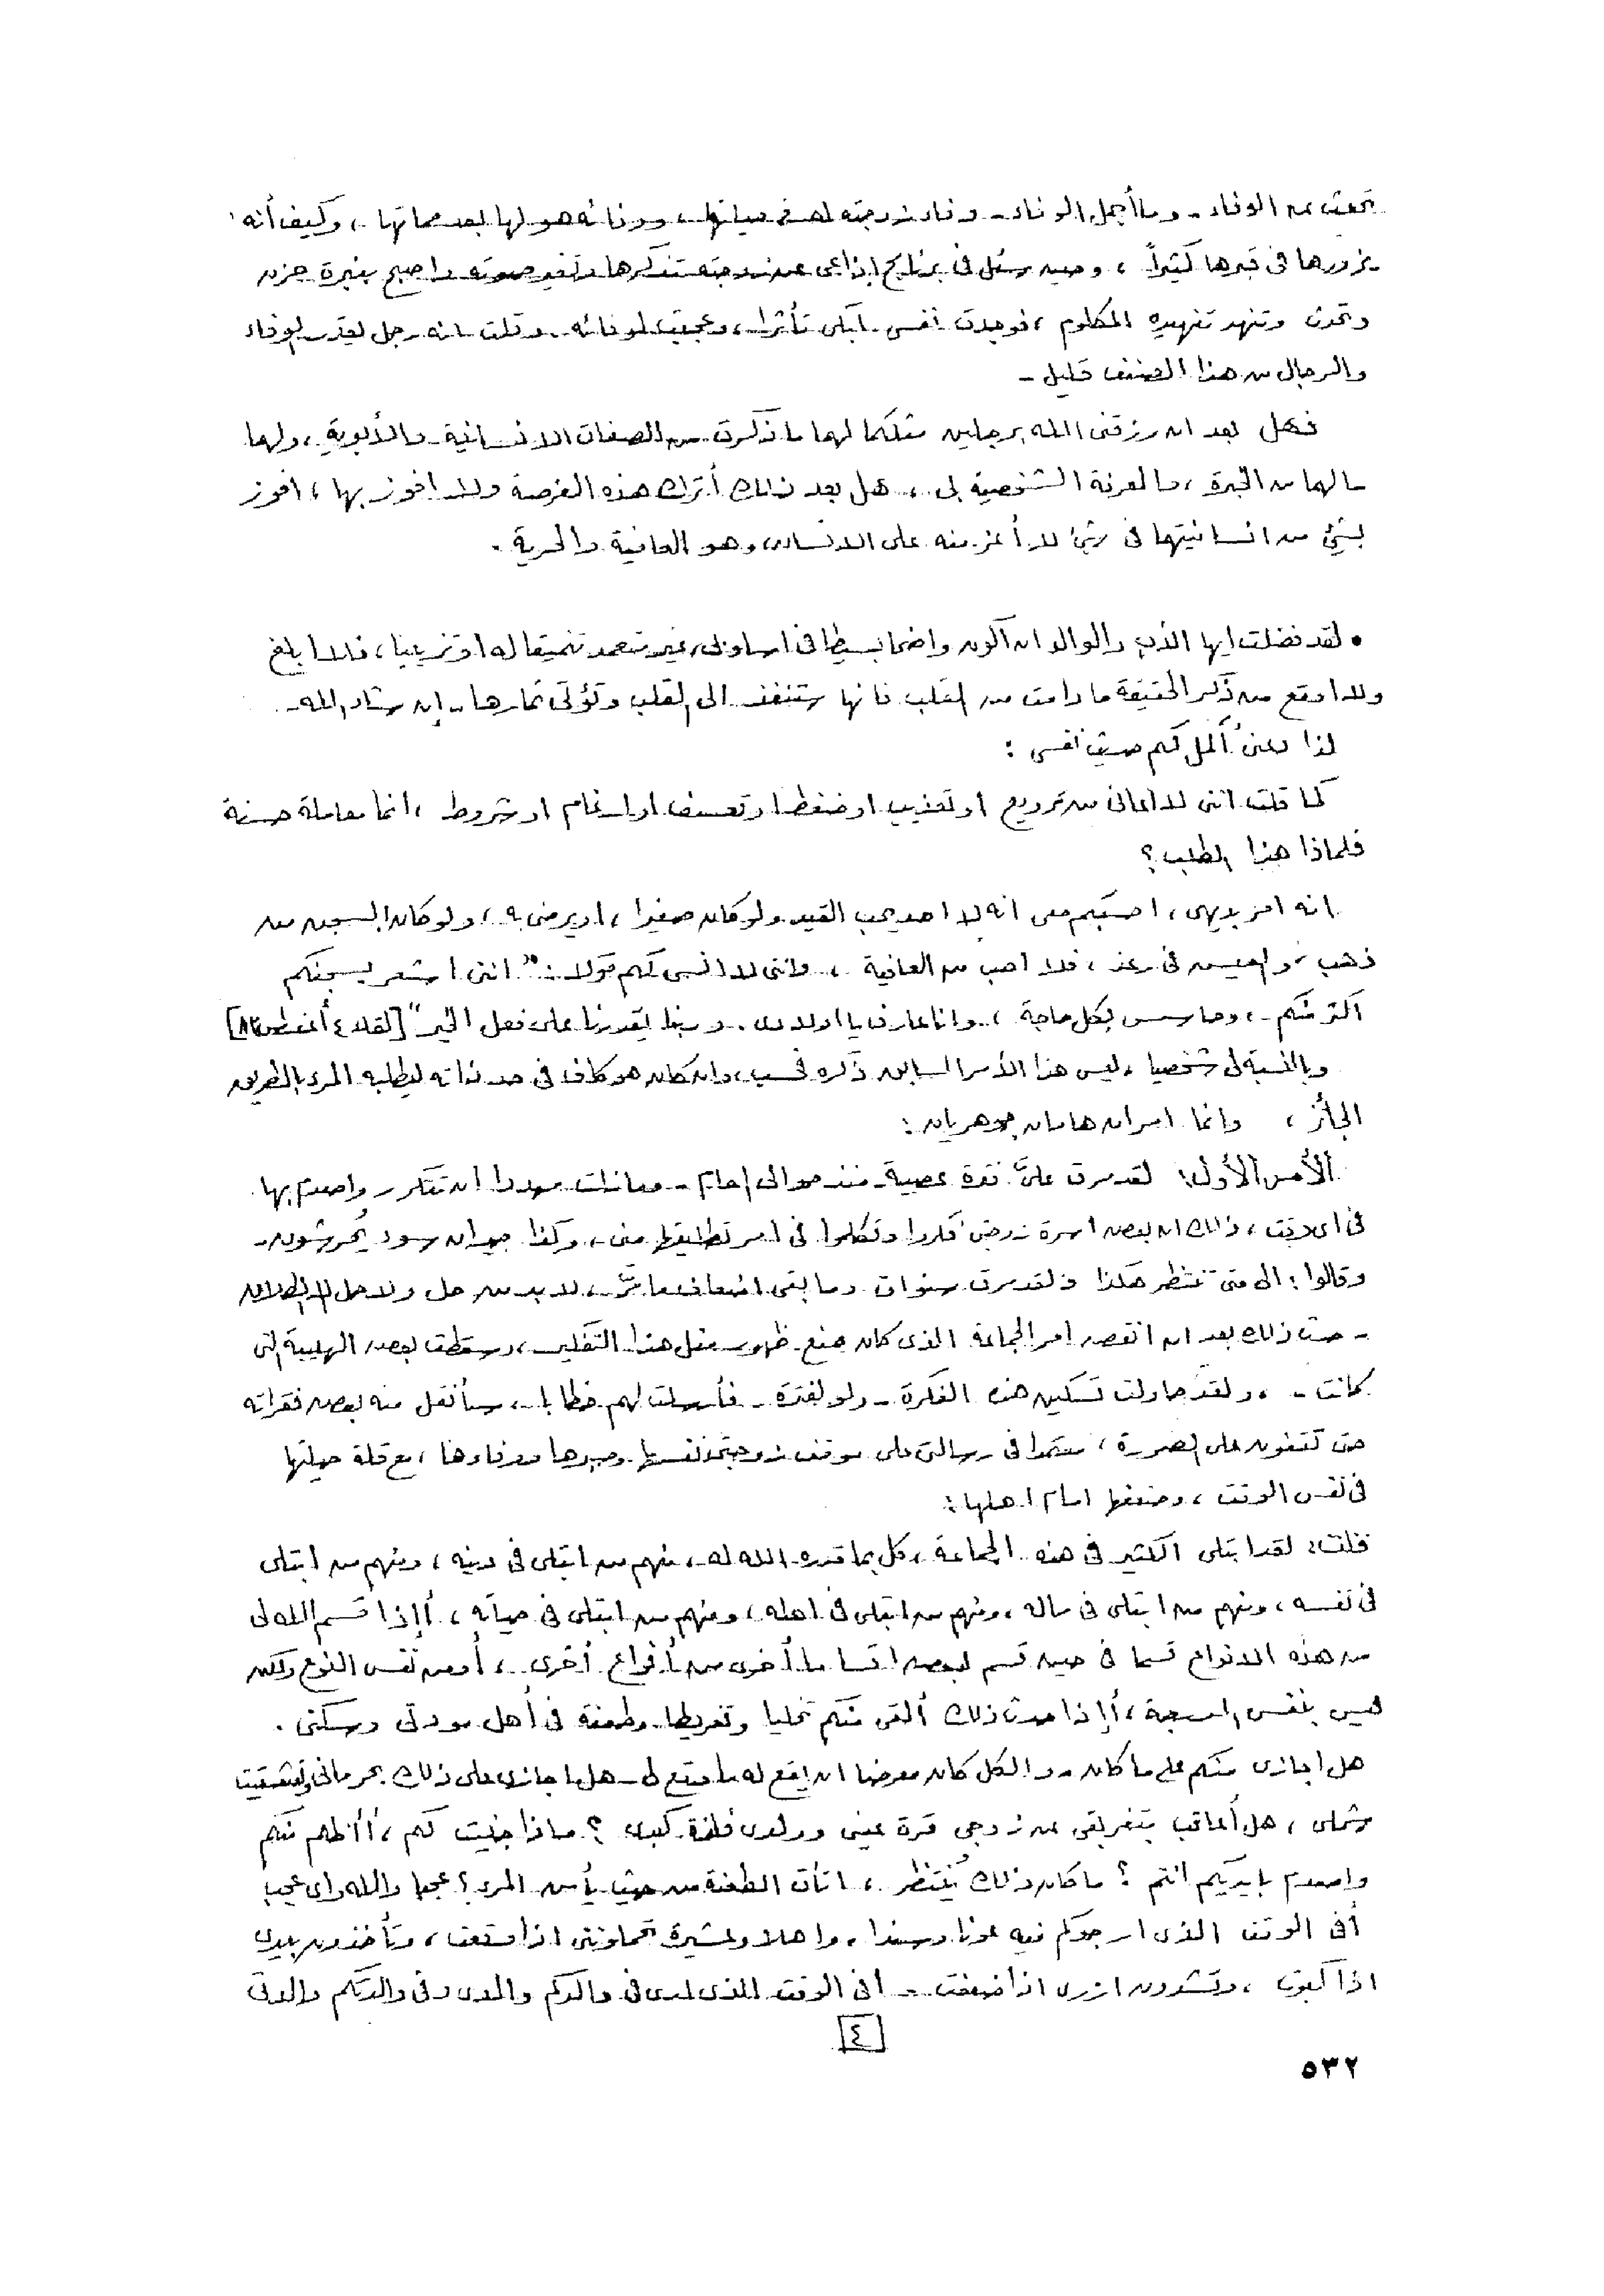 تحدث عن الوفاء - وما أجمل الوفاء - وفاء زوجته له في حياتها، ووفائه هو لها بعد مماتها، وكيف أنه
يزورها في قبرها كثيراً، وحين سئل في برنامج إذاعي عن زوجته تذكرها وتغير صوته واصبح بنبرة حزن
وتحدث وتنهد تنهيدة المكلوم، فوجدت نفسى ابكى تأثرا، وعجبت لوفائه وقلت انه رجل يقدر الوفاء
والرجال من هذا الصنف قليل -
فهل بعد ان رزقنى الله برجلين مثلكما لهما ما ذكرت من الصفات الانسانية والأبوية، ولهما
ما لهما من الخبرة، والمعرفة الشخصية بى، هل بعد ذلك أترك هذه الفرصة ولا افوز بها، افوز
بشئ من انسانيتهما فى شئ لا أعز منه على الانسان، وهو العافية والحرية.
• لقد فضلت ايها الأب والوالد ان اكون واضحا بسيطا فى اسلوبى، غير متعمد تنميقا له او تزيينا، فلا ابلغ
ولا اوقع من ذكر الحقيقة ما دامت من القلب فانها ستنفذ الى القلب وتؤتى ثمارها - إن شاء الله -
لذا دعنى أكمل لكم حديث نفسى :
كما قلت اننى لا اعانى من ترويع او تعذيب او ضغط او تعسف او ارغام او شروط، انما معاملة حسنة
فلماذا هذا الطلب؟
انه امر بديهى، احسبكم معى انه لا احد يحب القيد ولو كان صغيرا، او يرضى به، ولو كان السجن من
ذهب، والعيش فى رغد، فلا احب من العافية، واننى لا انسى لكم قولا : " اننى اشعر بسجنكم
اكثر منكم، وحاسس بكل حاجة، وانا عارف يا اولادى، وربنا يقدرنا على فعل الخير " [لقاء ٤ أغسطس ٨٢]
وبالنسبة لى شخصيا، ليس هذا الأمر السابق ذكره فحسب، وان كان هو كاف فى حد ذاته ليطلبه المرء بالطريق
الجائز، وانما امران هامان جوهريان :
الأمر الأول : لقد مرت علىّ فترة عصيبة منذ حوالى عام - وما زلت مهددا ان تتكرر واصدم بها
فى اى وقت، ذلك ان بعض اسرة زوجتى فكروا وتكلموا فى امر تطليقها منى، وكذا جيران سوء يحرشون -
وقالوا : الى متى تنتظر هكذا ولقد مرت سنوات وما بقى اضعاف ما مرّ، لا بد من حل ولا حل الا الطلاق
- حدث ذلك بعد ان انفض امر الجماعة الذى كان يمنع ظهور مثل هذا التفكير، وسقطت بعض الهيبة التى
كانت - ، ولقد حاولت تسكين هذه الفكرة - ولو لفترة - فأرسلت لهم خطابا، سأنقل منه بعض فقراته
حتى تقفون على الصورة، معتمدا فى رسالتى على موقف زوجتى نفسها وصبرها ووفاءها، مع قلة حيلتها
فى نفس الوقت، وضعفها امام اهلها :
فقلت : لقد ابتلى الكثير فى هذه الجماعة، كل بما قدره الله له، منهم من ابتلى فى دينه، ومنهم من ابتلى
فى نفسه، ومنهم من ابتلى فى ماله، ومنهم من ابتلى فى اهله، ومنهم من ابتلى فى حياته، أإذا قسم الله لى
من هذه الانواع قسما فى حين قسم لبعض اقساما أخرى من أنواع أخرى، أو من نفس النوع ولكن
ليس بنفس الدرجة، أإذا حدث ذلك ألقى منكم تخليا وتفريطا وطعنة فى أهل مودتى وسكنى .
هل اجازى منكم على ما كان - والكل كان معرضا ان يقع له ما وقع لى - هل اجازى على ذلك بحرمانى وتشتيت
شملى، هل أعاقب بتفريقى عن زوجى قرة عينى وولدى فلذة كبدى ؟ ماذا جنيت لكم، أأظلم منكم
واصدم بايديكم انتم ؟ ما كان ذلك يُنتظر، اتأت الطعنة من حيث يأمن المرء ؟ عجبا والله واى عجب
أفى الوقت الذى ارجوكم فيه عونا وسندا، واهلا وعشيرة تحملوننى اذا وقعت، وتأخذون بيدى
اذا كبوت، وتشدون ازرى اذا ضعفت - أفى الوقت الذى ارى فى والدكم والدى وفى والدتكم والدتى
[٤]
٥٣٢